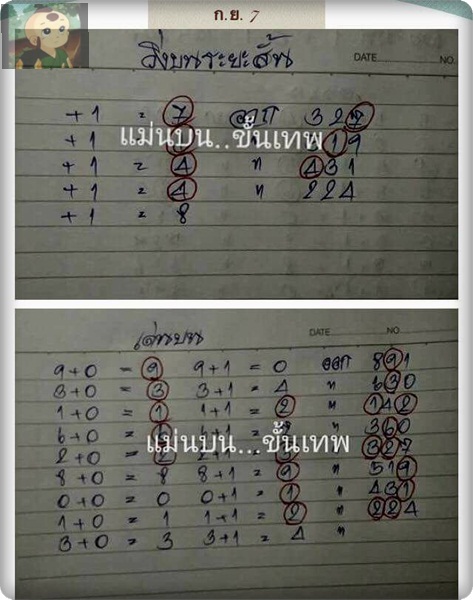 ก.ย. 7
วิ่งบนระยะสั้น
DATE NO.
+1 = 7 ออก 327
+1 519
+1 = 4 " 431
+1 = 4 " 224
+1 = 8
แม่นบน...ขั้นเทพ
เด่นบน
DATE NO.
9+0 = 9 9+1 = 0 ออก 891
3+0 = 3 3+1 = 4 " 630
1+0 = 1 1+1 = 2 " 142
6+0 = 6+1 = " 360
2+0 = 2+1 = 3 327
8+0 = 8 8+1 = 9 " 519
0+0 = 0 0+1 = 1 " 431
1+0 = 1 1+1 = 2 " 224
3+0 = 3 3+1 = 4 "
แม่นบน...ขั้นเทพ